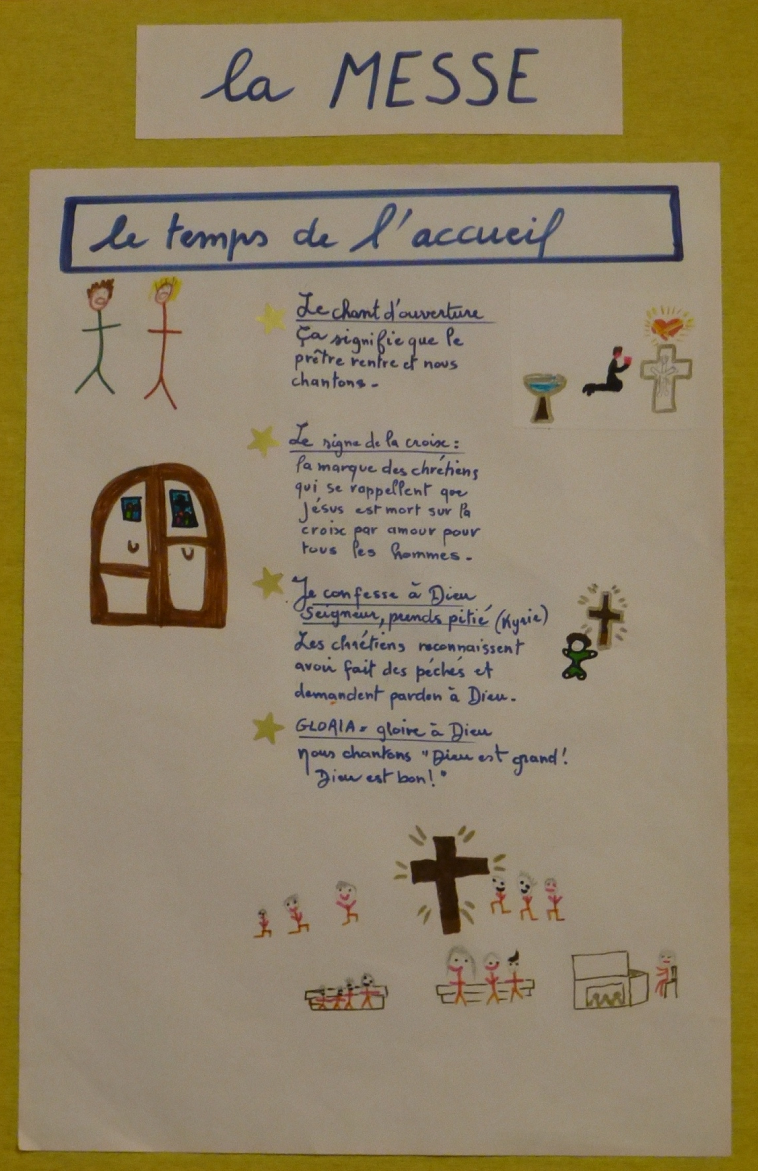 la MESSE
le temps de l'accueil
Le chant d'ouverture
Ça signifie que le
prêtre rentre et nous
chantons.
Le signe de la croix :
la marque des chrétiens
qui se rappellent que
Jésus est mort sur la
croix par amour pour
tous les hommes.
Je confesse à Dieu
Seigneur, prends pitié (Kyrie)
Les chrétiens reconnaissent
avoir fait des péchés et
demandent pardon à Dieu.
GLORIA = gloire à Dieu
Nous chantons "Dieu est grand!
Dieu est bon!"